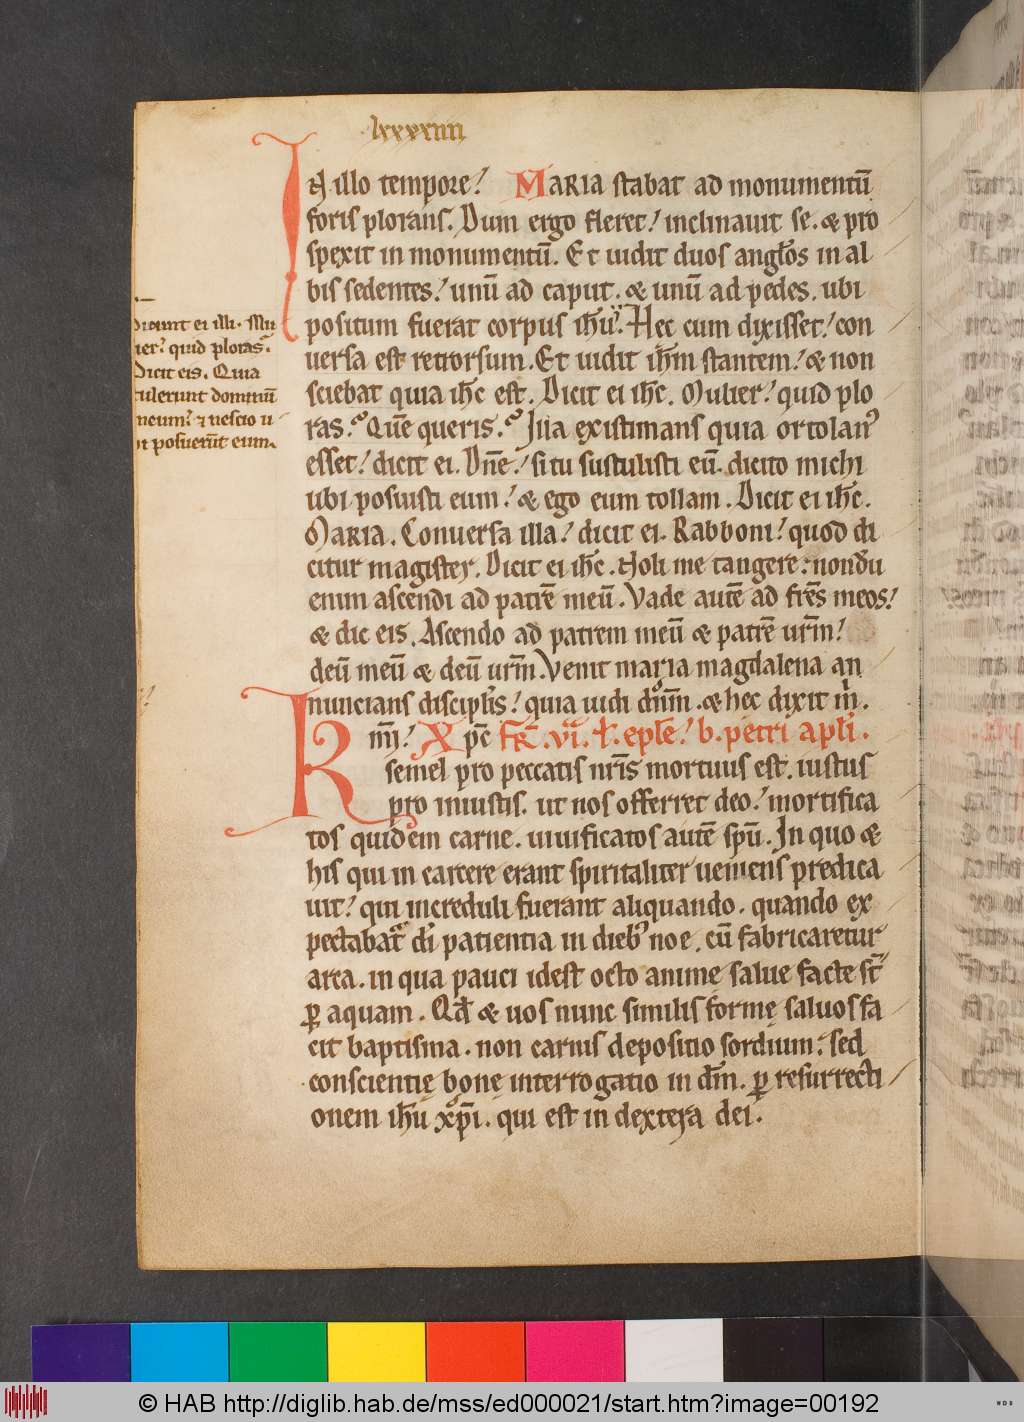 lxxxxiiii
In illo tempore! Maria stabat ad monumentū
foris plorans. Dum ergo fleret! inclinauit se. & pro
spexit in monumentū. Et uidit duos angl̄os in al
bis sedentes! unū ad caput. & unū ad pedes. ubi
positum fuerat corpus ih̄u. Hec cum dixisset! con
uersa est retrorsum. Et uidit ih̄m stantem! & non
sciebat quia ih̄c est. Dicit ei ih̄c. Mulier! quid plo
ras. Quē queris. Illa existimans quia ortolan᾽
esset! dicit ei. Dn̄e! si tu sustulisti eū. dicito michi
ubi posuisti eum! & ego eum tollam. Dicit ei ih̄c.
Maria. Conuersa illa! dicit ei. Rabboni! quod di
citur magister. Dicit ei ih̄c. Noli me tangere: nondū
enim ascendi ad patrē meū. Vade autē ad fr̄es meos!
& dic eis. Ascendo ad patrem meū & patrē ur̄m!
deū meū & deū ur̄m. Venit maria magdalena an
nuncians discipl̄is! quia uidi dn̄m. & hec dixit m.
Dicunt ei illi. Mu
ier! quid ploras.
Dicit eis. Quia
tulerunt dominū
meum! ⁊ nescio u
bi posuer̄t eum.
Kmi! Xpc Fr̄. vi. l. epl̄e! b. petri apl̄i.
semel pro peccatis nr̄is mortuus est. iustus
pro iniustis. ut nos offerret deo! mortifica
tos quidem carne. uiuificatos autē sp̄u. In quo &
his qui in carcere erant spiritaliter ueniens predica
uit! qui increduli fuerant aliquando. quando ex
pectabat di patientia in dieb᾽ noe. cū fabricaretur
arca. in qua pauci idest octo anime salue facte st̄
ꝑ aquam. Qd̄ & uos nunc similis formę saluos fa
cit baptisma. non carnis depositio sordium: sed
conscientię bonę interrogatio in dm̄. ꝑ resurrecti
onem ih̄u xp̄i. qui est in dextera dei.
© HAB http://diglib.hab.de/mss/ed000021/start.htm?image=00192